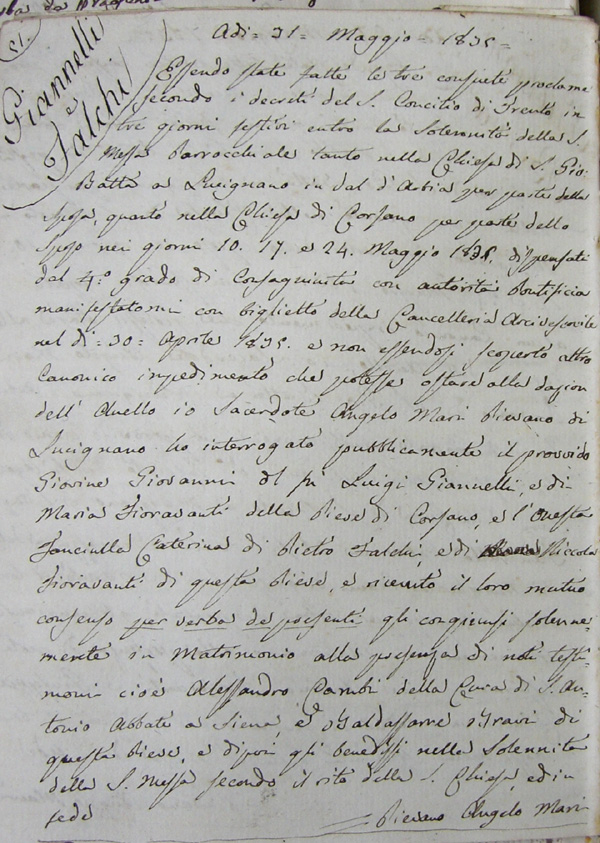 51.
Giannelli
e
Falchi
Adi = 31 = Maggio = 1835 =
Essendo state fatte le tre consuete proclame
secondo i decreti del S. Concilio di Trento in
tre giorni festivi entro la Solennità della S.
Messa Parrocchiale tanto nella Chiesa di S. Gio:
Batta a Lucignano in Val d'Arbia per parte della
sposa, quanto nella Chiesa di Corsano per parte dello
sposo nei giorni 10. 17. e 24. Maggio 1835. dispensati
dal 4.º grado di Consaguinità con autorità Pontificia
manifestatomi con biglietto della Cancelleria Arcivescovile
nel dì = 30 = Aprile 1835. e non essendosi scoperto altro
Canonico impedimento che potesse ostare alla dazion
dell' Anello io Sacerdote Angelo Mari Pievano di
Lucignano ho interrogato pubblicamente il provvido
Giovine Giovanni del fu Luigi Giannelli, e di
Maria Fioravanti della Pieve di Corsano, e l'Onesta
Fanciulla Caterina di Pietro Falchi, e di Niccola
Fioravanti di questa Pieve, e ricevuto il loro mutuo
consenso per verba de presenti gli congiunsi solenne-
mente in Matrimonio alla presenza di noti testi-
moni cioè Alessandro Cambi della Cura di S. An-
tonio Abbate a Siena, e Baldassarre Bravi di
questa Pieve, e dipoi gli benedissi nella Solennità
della S. Messa secondo il rito della S. Chiesa, ed in
fede
Pievano Angelo Mari